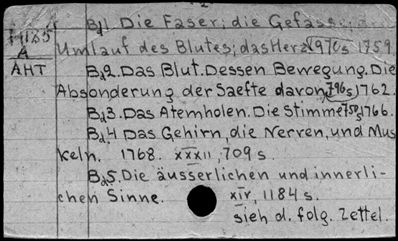 Bd1. Die Faser; die Gefässe; der
Umlauf des Blutes; das Herz. 970s 1759.
A
AHT
Bd2. Das Blut. Dessen Bewegung. Die
Absonderung der Saefte davon, 796s, 1762.
Bd3. Das Atemholen. Die Stimme, 750s, 1766.
Bd4. Das Gehirn, die Nerven, und Mus
keln. 1768. XXXII, 709 s.
Bd5. Die äusserlichen und innerli-
chen Sinne. XIV, 1184 s.
sieh d. folg. Zettel.